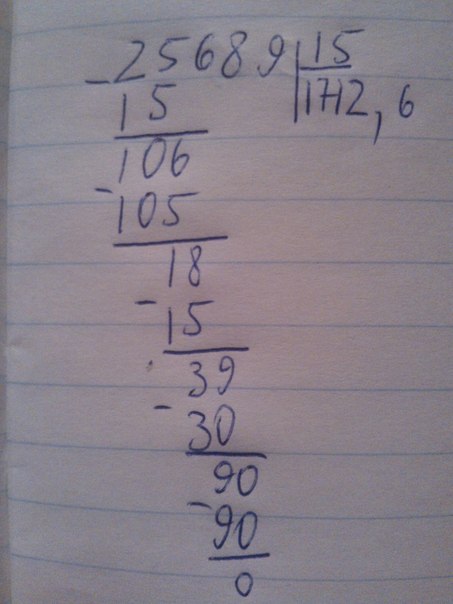 - 25689 | 15
15 | 1712,6
106
- 105
18
- 15
39
- 30
90
- 90
0